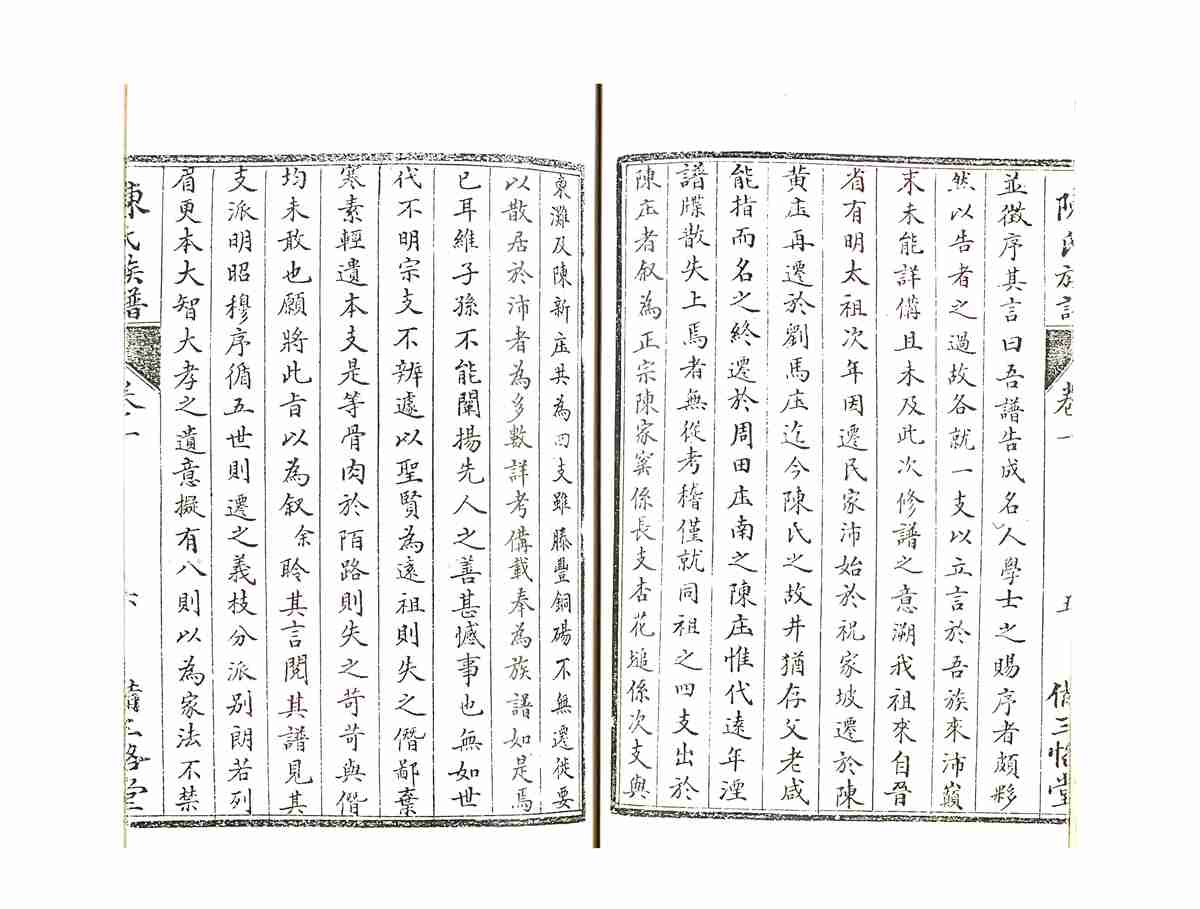 陳氏族譜
卷一
五
三怡堂
並徵序其言曰吾譜告成名人學士之賜序者頗夥
然以告者之過故各就一支以立言於吾族來沛巔
末未能詳備且未及此次修譜之意溯我祖來自晉
省有明太祖次年因遷民家沛始於祝家坡遷於陳
黃庄再遷於劉馬庄迄今陳氏之故井猶存父老咸
能指而名之終遷於周田庄南之陳庄惟代遠年湮
譜牒散失上焉者無從考稽僅就同祖之四支出於
陳庄者叙為正宗陳家窯係長支杏花塠係次支與
東灘及陳新庄共為四支雖滕豐銅碭不無遷徙要
以散居於沛者為多數詳考備載奉為族譜如是焉
已耳維子孫不能闡揚先人之善甚憾事也無如世
代不明宗支不辨遽以聖賢為遠祖則失之僭鄙棄
寒素輕遺本支是等骨肉於陌路則失之苛苛與僭
均未敢也願將此旨以為叙余聆其言閱其譜見其
支派明昭穆序循五世則遷之義枝分派別朗若列
眉更本大智大孝之遺意擬有八則以為家法不禁
陳氏族譜
卷一
六